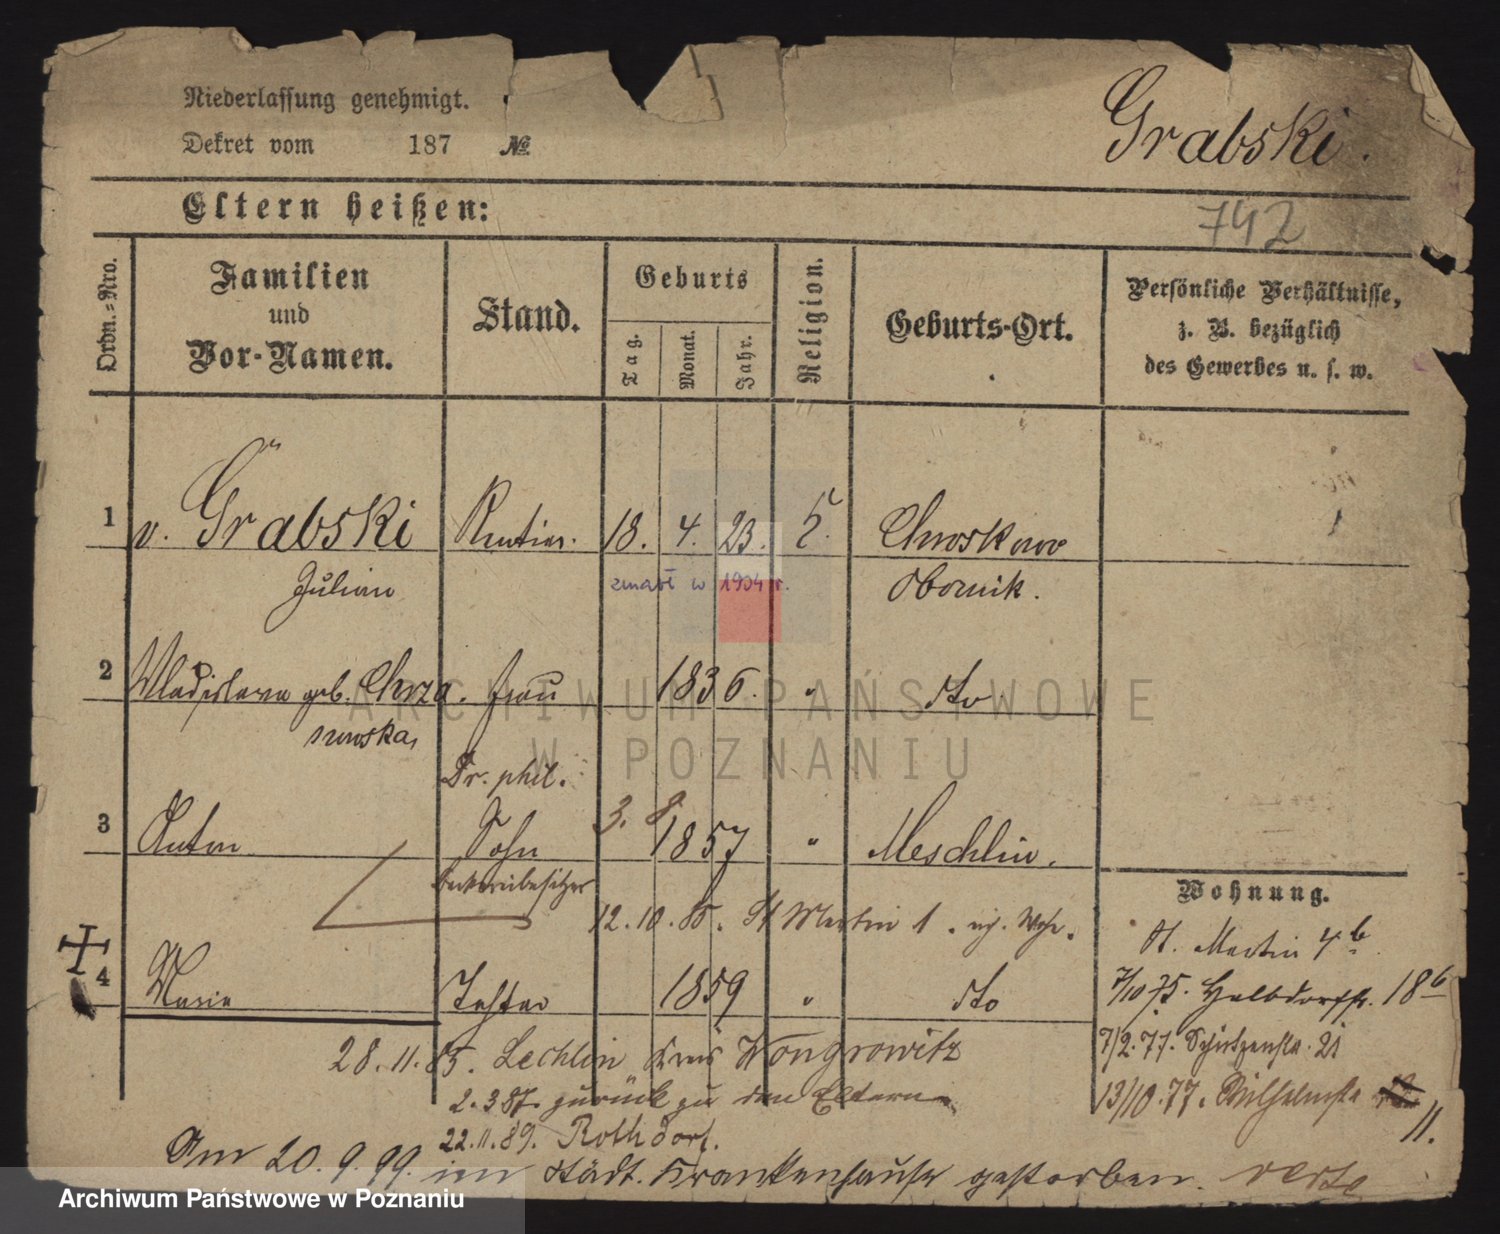 Niederlassung genehmigt.
Dekret vom 187 №
Grabski.
Eltern heißen:
742
Ordn.-Nro.
Familien
und
Vor-Namen.
Stand.
Geburts
Tag.
Monat.
Jahr.
Religion.
Geburts-Ort.
Persönliche Verhältnisse,
z. B. bezüglich
des Gewerbes u. s. w.
1 v. Grabski Rentier. 18. 4. 23.
Julian zmarł w 1904 r. Obornik.
2 Wladislawa geb. Chrza Frau 1836. " dto
nowska,
Dr. phil.
3 Anton Sohn 3. 8. 1857 " Meschlin.
12. 10. 85. St Martin 1.
Wohnung.
St. Martin 4b
4 Marie Tochter 1859 " dto
7/10 75. Halbdorfstr. 18b
28. 11. 85. Lechlin Kreis Wongrowitz
7/2. 77. Schützenstr. 21
2. 3 87. zurück zu den Eltern
13/10. 77. Wilhelmstr. 11.
22. 11. 89. Rothdorf.
Am 20. 9. 99. im städt. Krankenhause gestorben. verte
ARCHIWUM PAŃSTWOWE
W POZNANIU
Archiwum Państwowe w Poznaniu